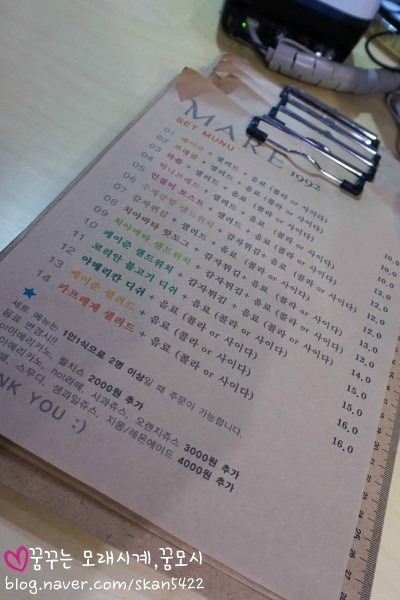 MAKE 1992
SET MUNU
01 베이글 + 샐러드 + 음료 (콜라 or 사이다) 10.0
02 프레즐 + 샐러드 + 음료 (콜라 or 사이다) 10.0
03 와플 + 샐러드 + 음료 (콜라 or 사이다)
04 허니브레드 + 샐러드 + 음료 (콜라 or 사이다)
05 멍청이 토스트 + 샐러드 + 음료 (콜라 or 사이다)
06 수제함박 샌드위치 + 감자튀김 + 음료 (콜라 or 사이다)
07 감자튀김 + 샐러드 + 음료 (콜라 or 사이다)
08 치아바타 핫도그 + 감자튀김 + 음료 (콜라 or 사이다)
09 치아바타 샌드위치 + 감자튀김 + 음료 (콜라 or 사이다)
10 케이준 샌드위치 + 감자튀김 + 음료 (콜라 or 사이다)
11 코리안 불고기 디쉬 + 음료 (콜라 or 사이다)
12 아메리칸 디쉬 + 음료 (콜라 or 사이다) 15.0
13 케이준 샐러드 + 음료 (콜라 or 사이다) 16.0
14 카프레제 샐러드 + 음료 (콜라 or 사이다) 16.0
세트 메뉴는 1인1식으로 2명 이상일 때 주문이 가능합니다.
음료 변경시!!
아메리카노, 웰치스 2000원 추가
아메리카노, hot라떼, 사과쥬스, 오렌지쥬스 3000원 추가
스무디, 생과일쥬스, 자몽/레몬에이드 4000원 추가
YOU :)
꿈꾸는 모래시계,꿈모시
blog.naver.com/skan5422